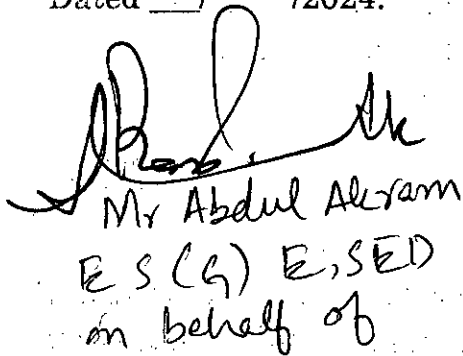 Dated ___/ /2024.
Mr Abdul Akram
E S (G) E, SED
on behalf of